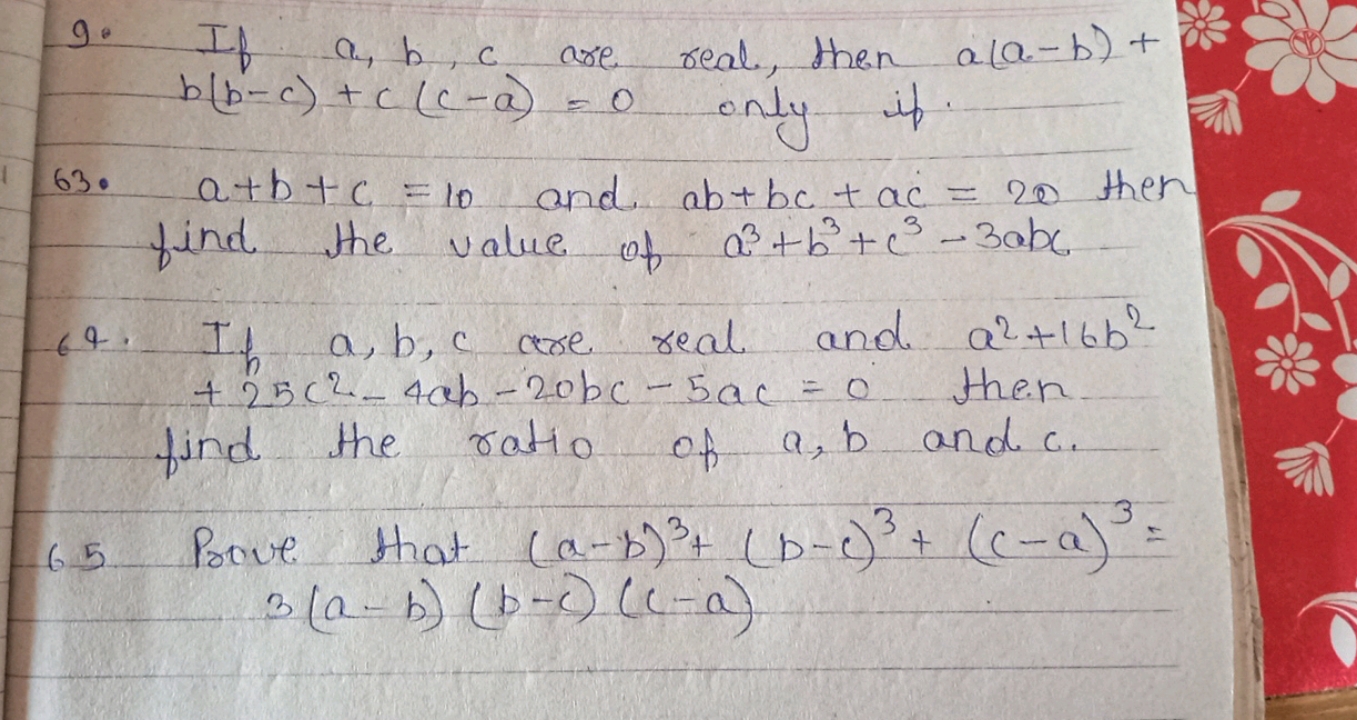 9. If a, b, c are real, then a(a-b) +
b(b-c) + c(c-a) = 0 only if.
63. a+b+c = 10 and ab+bc+ac = 20 then
find the value of a³+b³+c³-3abc
64. If a, b, c are real and a²+16b²
+25c²-4ab-20bc-5ac = 0 then
find the ratio of a, b and c.
65 Prove that (a-b)³+(b-c)³+(c-a)³=
3(a-b)(b-c)(c-a)